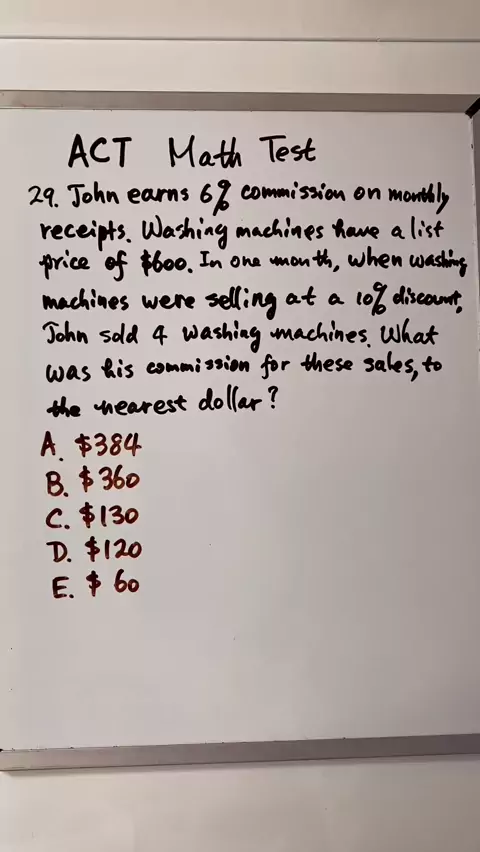 ACT Math Test
29. John earns 6% commission on monthly
receipts. Washing machines have a list
price of $600. In one month, when washing
machines were selling at a 10% discount,
John sold 4 washing machines. What
was his commission for these sales, to
the nearest dollar?
A. $384
B. $360
C. $130
D. $120
E. $ 60